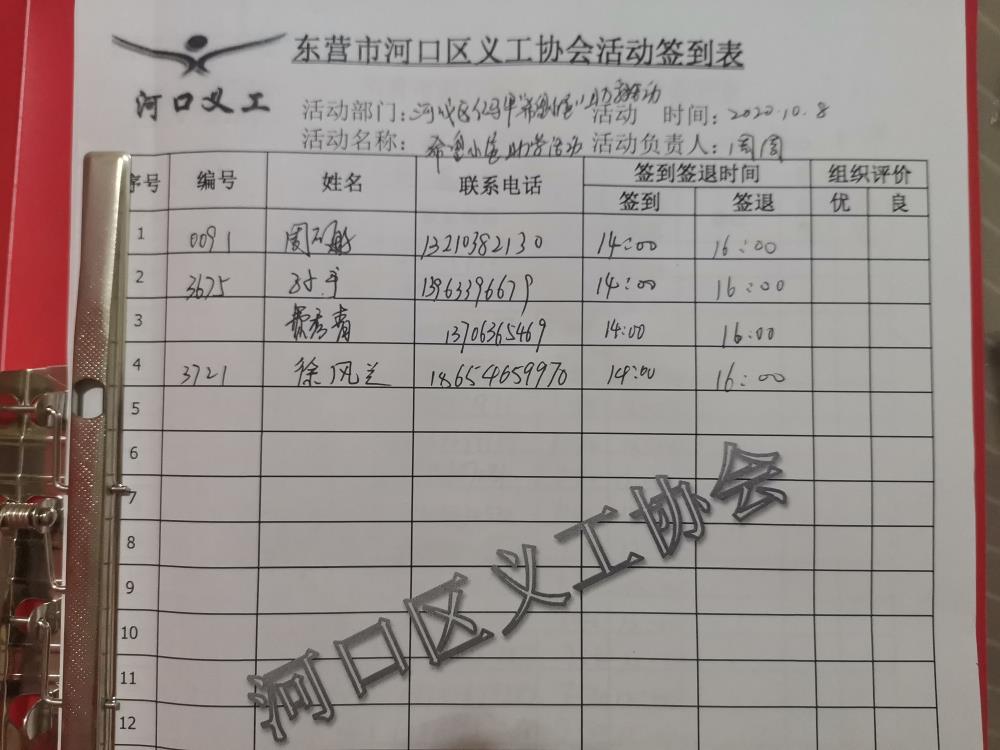 东营市河口区义工协会活动签到表
河口义工
活动部门：河口区 活动 时间：2020.10.8
活动名称： 希望小屋助学活动 活动负责人：周围
序号 编号 姓名 联系电话 签到签退时间 组织评价
签到 签退 优 良
1 0091 周 13210382130 14:00 16:00
2 3675 13963396679 14:00 16:00
3 秀青 13706365469 14:00 16:00
4 3721 徐风兰 18654659970 14:00 16:00
5
6
7
8
9
10
11
12
河口区义工协会